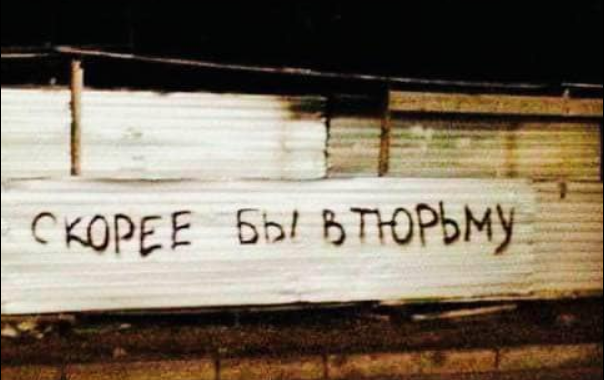 СКОРЕЕ БЫ В ТЮРЬМУ